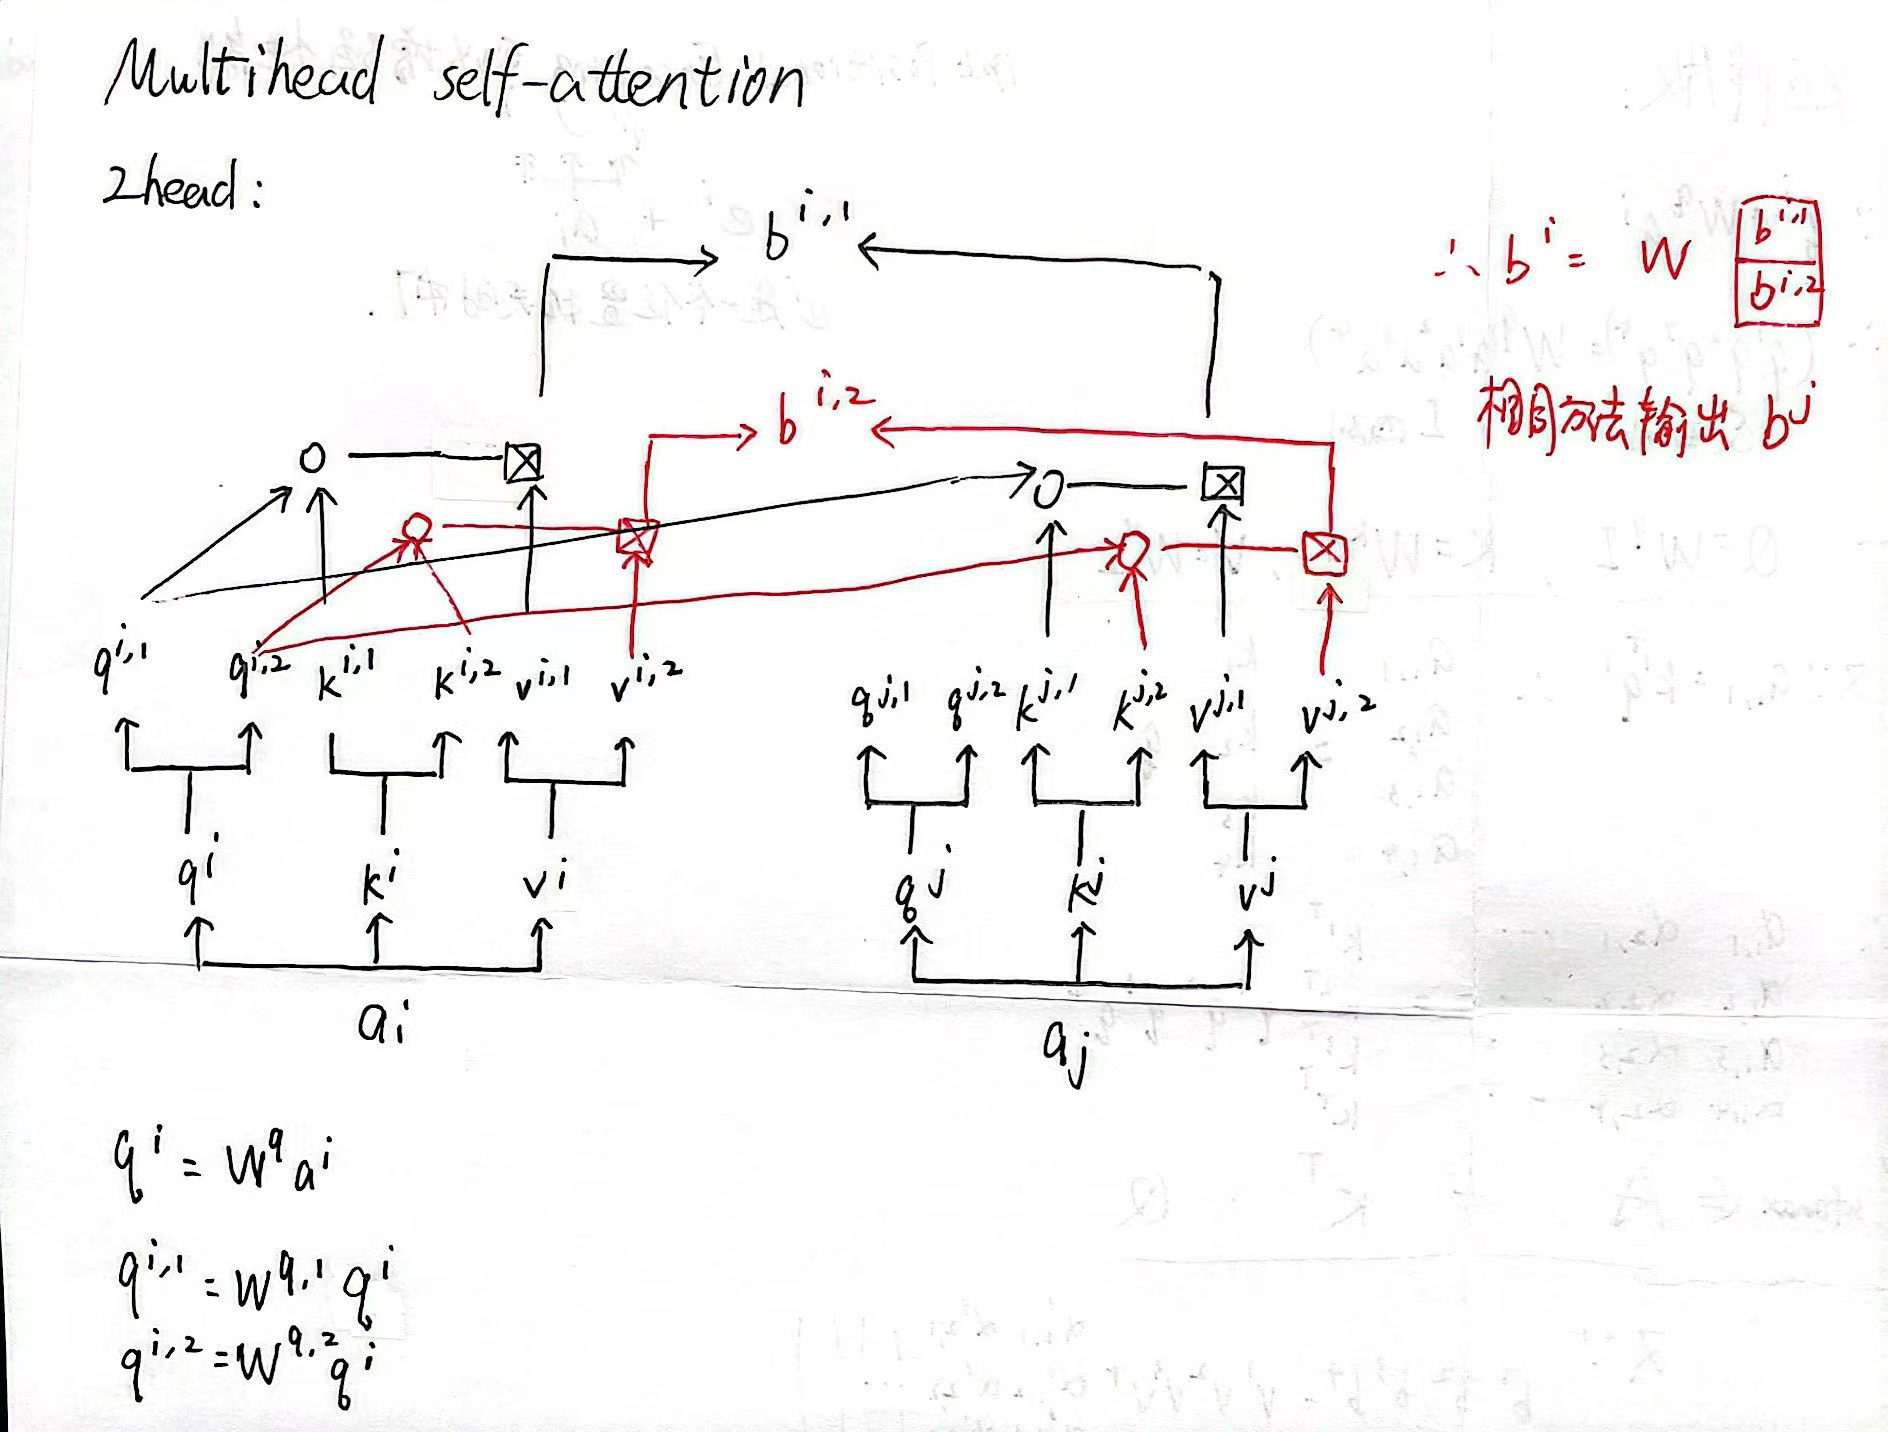 Multihead self-attention
2head:
b^{i,1}
∴ b^i = W b^{i,1} b^{i,2}
b^{i,2}
相同方法输出 b^j
q^{i,1} q^{i,2} k^{i,1} k^{i,2} v^{i,1} v^{i,2}
q^{j,1} q^{j,2} k^{j,1} k^{j,2} v^{j,1} v^{j,2}
q^i k^i v^i
q^j k^j v^j
a_i
a_j
q^i = W^q a^i
q^{i,1} = W^{q,1} q^i
q^{i,2} = W^{q,2} q^i